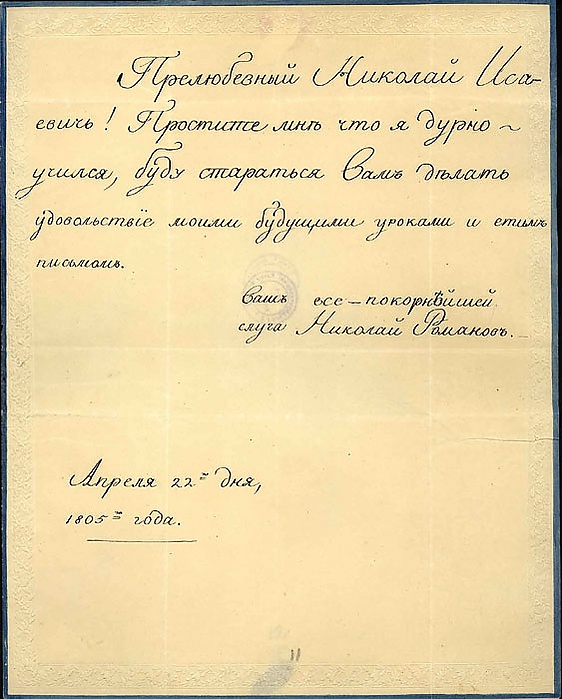 Прелюбезный Николай Иса-
евичь! Простите мнѣ что я дурно ~
учился, буду стараться Вамъ дѣлать
удовольствїе моими будущими уроками и етимъ
письмомъ.
Вашъ все-покорнѣйшей
слуга Николай Романовъ.
Апреля 22го дня,
1805го года.
11